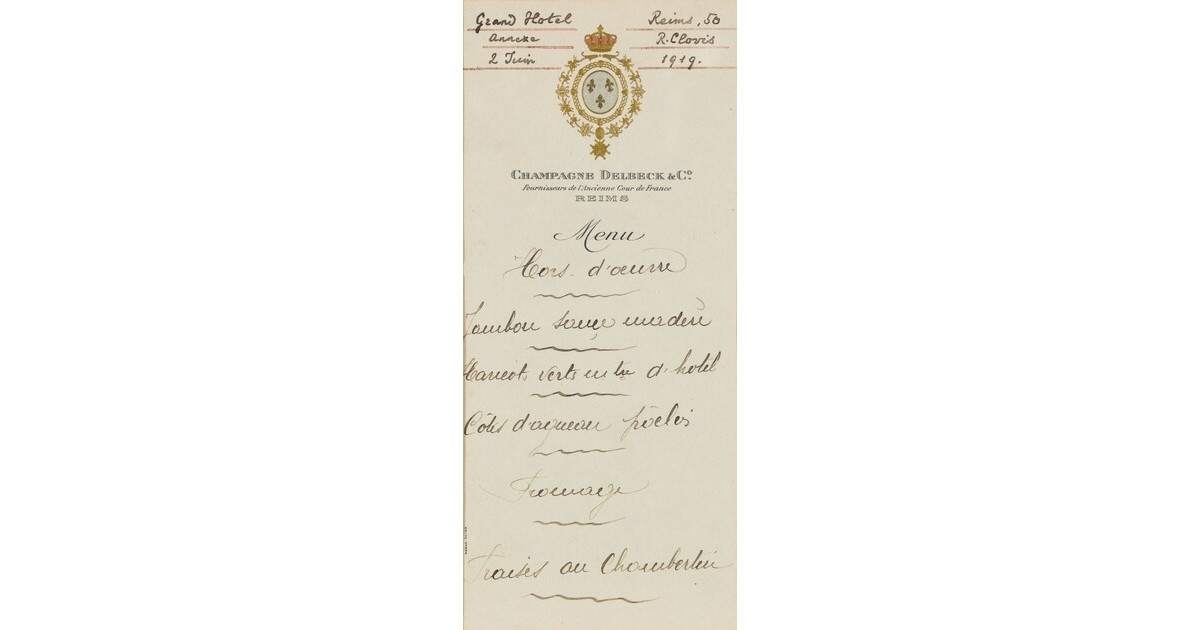 Grand Hotel
Annexe
2 Juin
Reims, 50
R. Clovis
1919.
CHAMPAGNE DELBECK & Cº
Fournisseurs de l'Ancienne Cour de France
REIMS
Menu
Hors-d'œuvre
Jambon sauce madère
Haricots verts m tre d'hotel
Côtes d'agneau poëlés
Fromage
Fraises au Chambertin